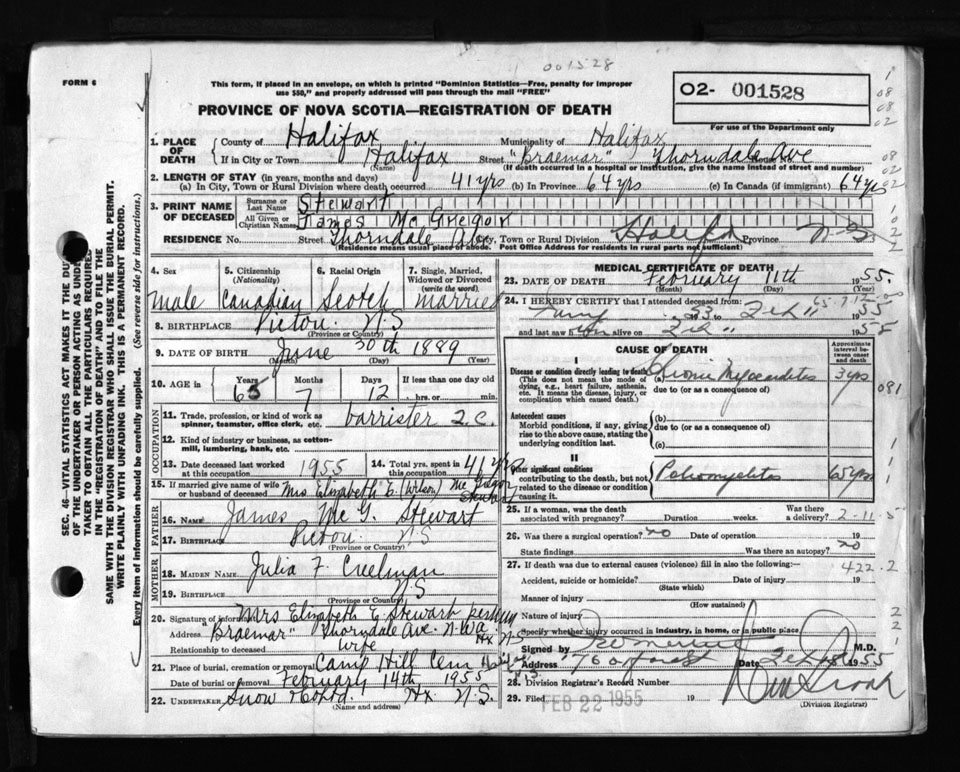 001528
FORM 6
This form, if placed in an envelope, on which is printed "Dominion Statistics—Free, penalty for improper
use $50," and properly addressed will pass through the mail "FREE"
O2- 001528
For use of the Department only
PROVINCE OF NOVA SCOTIA—REGISTRATION OF DEATH
SEC. 46—VITAL STATISTICS ACT MAKES IT THE DU
OF THE UNDERTAKER OR PERSON ACTING AS UND
TAKER TO OBTAIN ALL THE PARTICULARS REQUIRE
IN THE "REGISTRATION OF DEATH" AND TO FILE THE
SAME WITH THE DIVISION REGISTRAR WHO SHALL ISSUE THE BURIAL PERMIT.
WRITE PLAINLY WITH UNFADING INK. THIS IS A PERMANENT RECORD.
Every item of information should be carefully supplied. (See reverse side for instructions.)
1. PLACE OF DEATH County of Halifax Municipality of Halifax
If in City or Town Halifax Street "Braemar" Thorndale Ave
(Name) (If death occurred in a hospital or institution, give the name instead of street and number)
2. LENGTH OF STAY (in years, months and days)
(a) In City, Town or Rural Division where death occurred 41 yrs (b) In Province 64 yrs (c) In Canada (if immigrant) 64 yrs
3. PRINT NAME OF DECEASED Surname or Last Name Stewart
All Given or Christian Names James McGregor
RESIDENCE No. Street Thorndale Ave City, Town or Rural Division Halifax Province N-S
(Residence means usual place of abode. Post Office Address for residents in rural parts not sufficient)
4. Sex 5. Citizenship (Nationality) 6. Racial Origin 7. Single, Married, Widowed or Divorced (write the word)
male Canadian Scotch married
8. BIRTHPLACE Pictou N.S
(Province or Country)
9. DATE OF BIRTH June 30th 1889
(Month) (Day) (Year)
10. AGE in Years 65 Months 7 Days 12 If less than one day old hrs. or min.
OCCUPATION
11. Trade, profession, or kind of work as spinner, teamster, office clerk, etc. barrister Q.C.
12. Kind of industry or business, as cotton-mill, lumbering, bank, etc.
13. Date deceased last worked at this occupation 1955 14. Total yrs. spent in this occupation 41 yrs
15. If married give name of wife or husband of deceased Mrs Elizabeth E (Wilson) McGregor Stewart
FATHER
16. NAME James McG. Stewart
17. BIRTHPLACE Pictou N.S
(Province or Country)
MOTHER
18. MAIDEN NAME Julia F. Creelman
19. BIRTHPLACE N.S
(Province or Country)
20. Signature of informant Mrs Elizabeth E. Stewart
Address "Braemar" Thorndale Ave. N-W-A Hx N-S
Relationship to deceased wife
21. Place of burial, cremation or removal Camp Hill Cem Halifax
Date of burial or removal February 14th 1955
22. UNDERTAKER Snow & Co Ltd. Hx N.S.
(Name and address)
MEDICAL CERTIFICATE OF DEATH
23. DATE OF DEATH February 11th 1955
(Month) (Day)
24. I HEREBY CERTIFY that I attended deceased from:
53 to Feb 11 1955
and last saw him alive on Feb 11 1955
CAUSE OF DEATH
Approximate interval between onset and death
I
Disease or condition directly leading to death (a) Chronic Myocarditis 3 yrs
(This does not mean the mode of dying, e.g., heart failure, asthenia, etc. It means the disease, injury, or complication which caused death.)
due to (or as a consequence of)
081
Antecedent causes
Morbid conditions, if any, giving rise to the above cause, stating the underlying condition last.
(b)
due to (or as a consequence of)
(c)
II
Other significant conditions contributing to the death, but not related to the disease or condition causing it.
Poliomyelitis 65 yrs
25. If a woman, was the death associated with pregnancy? Duration weeks. Was there a delivery? 2-11-5
26. Was there a surgical operation? no Date of operation 19
State findings Was there an autopsy? no
27. If death was due to external causes (violence) fill in also the following:— 422.2
Accident, suicide or homicide? Date of injury 19
(State which)
Manner of injury
(How sustained)
Nature of injury
Specify whether injury occurred in industry, in home, or in public place
Signed by M.D.
Address Date Feb 18 1955
28. Division Registrar's Record Number
29. Filed FEB 22 1955 19
(Division Registrar)